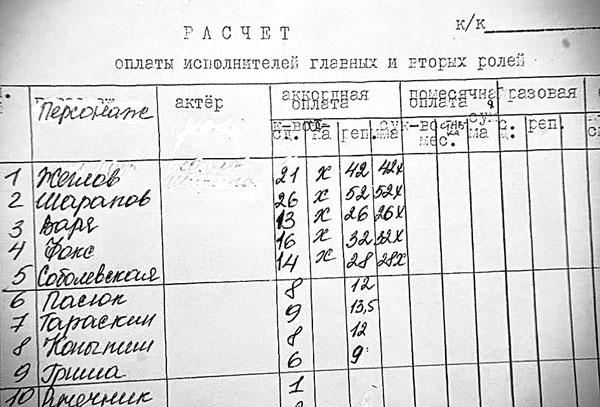 РАСЧЕТ
к/к
оплаты исполнителей главных и вторых ролей
Персонаж актёр аккордная оплата помесячная оплата разовая
сд. реп. мес. сума реп.
1 Жеглов 21 х 42 42х
2 Шарапов 26 х 52 52х
3 Варя 13 х 26 26х
4 Фокс 16 х 32 32х
5 Соболевская 14 х 28 28х
6 Пасюк 8 12
7 Тараскин 9 13,5
8 Копытин 8 12
9 Гриша 6 9
10 1